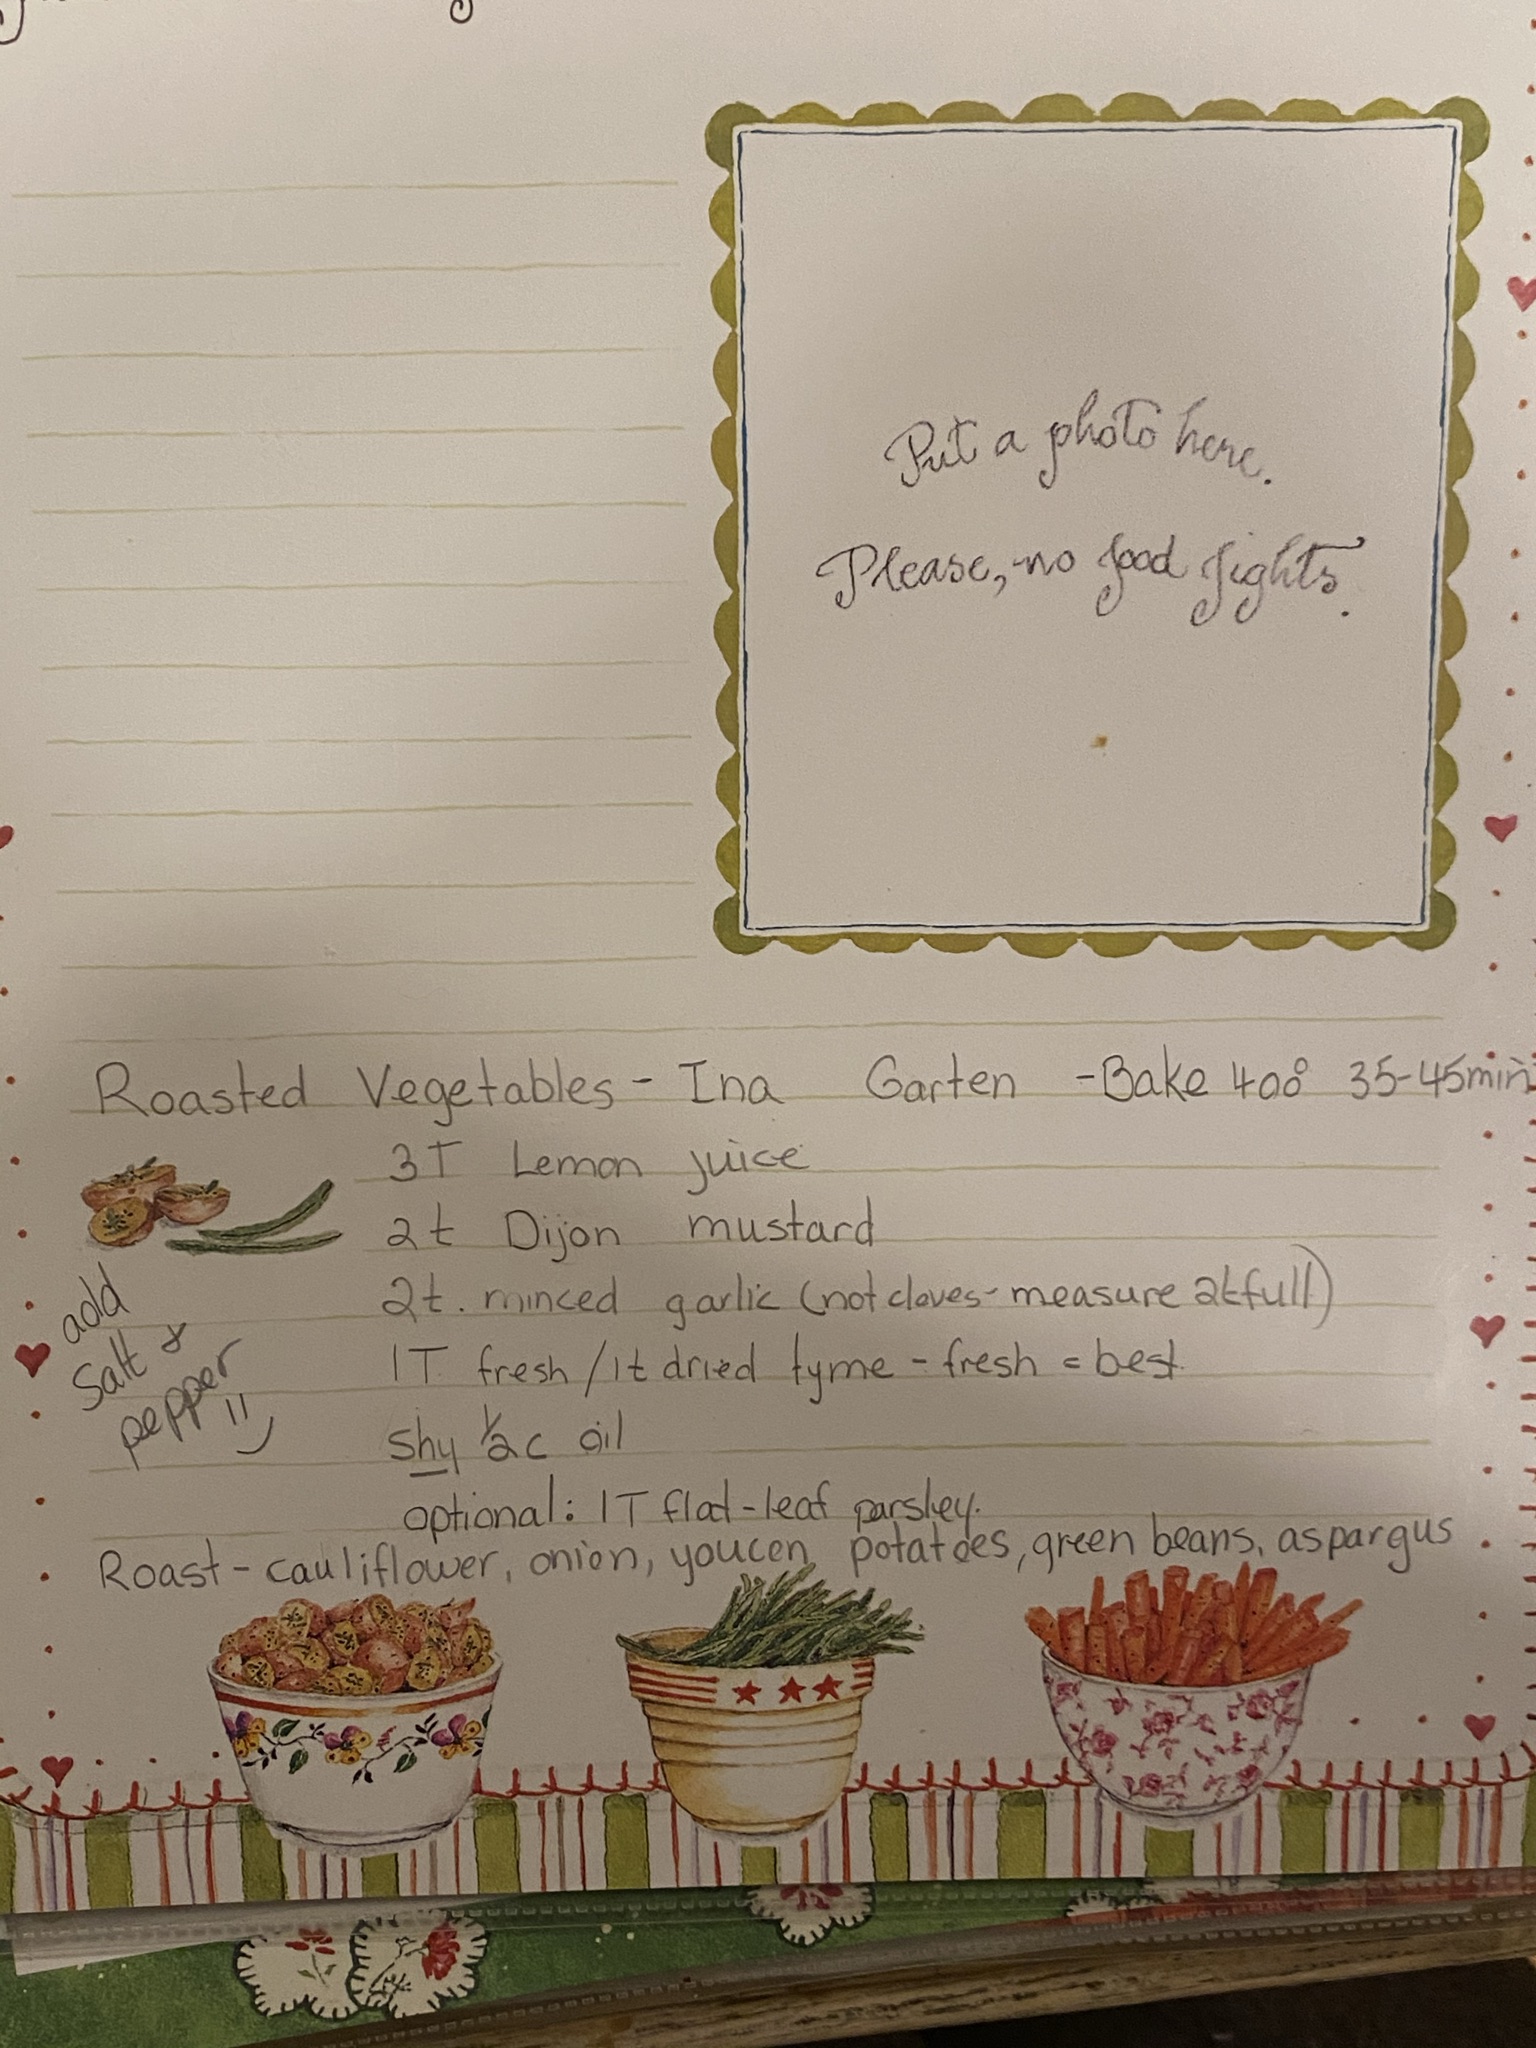 Put a photo here.
Please, no food fights.
Roasted Vegetables - Ina Garten - Bake 400° 35-45min
3T Lemon juice
2t Dijon mustard
2t. minced garlic (not cloves - measure 2t full)
1T fresh / 1t dried tyme - fresh = best.
shy 1/2 c oil
optional: 1T flat-leaf parsley.
add
Salt &
pepper
Roast - cauliflower, onion, potatoes, green beans, aspargus